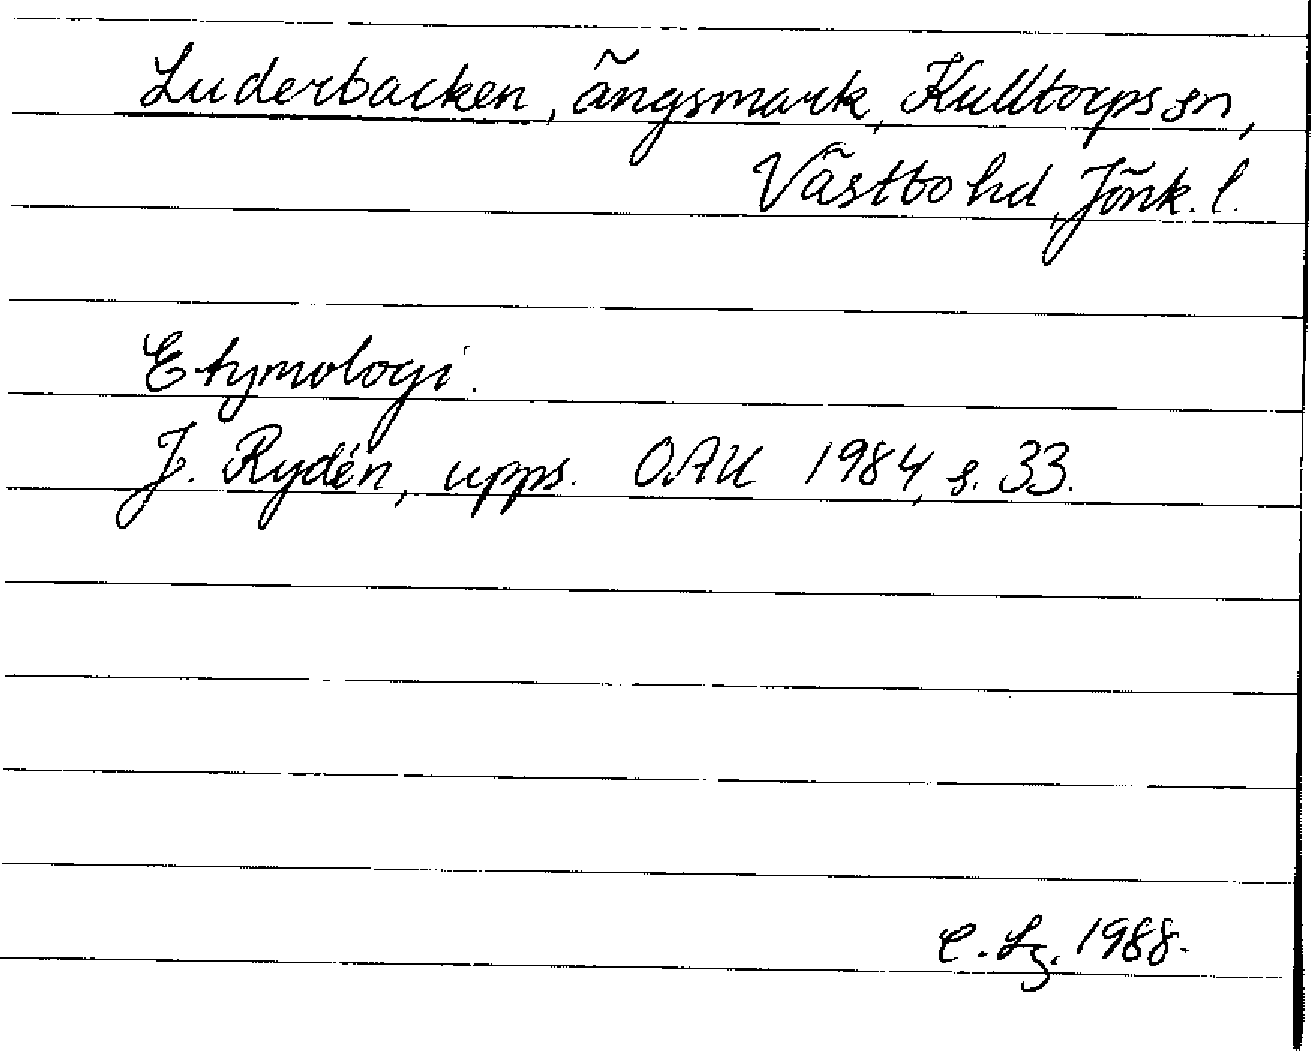 Luderbacken, ängsmark, Kulltorps sn,
Västbo hd, Jönk. l.
Etymologi.
J. Rydén, upps. OAU 1984, s. 33.
C. Lg. 1988.